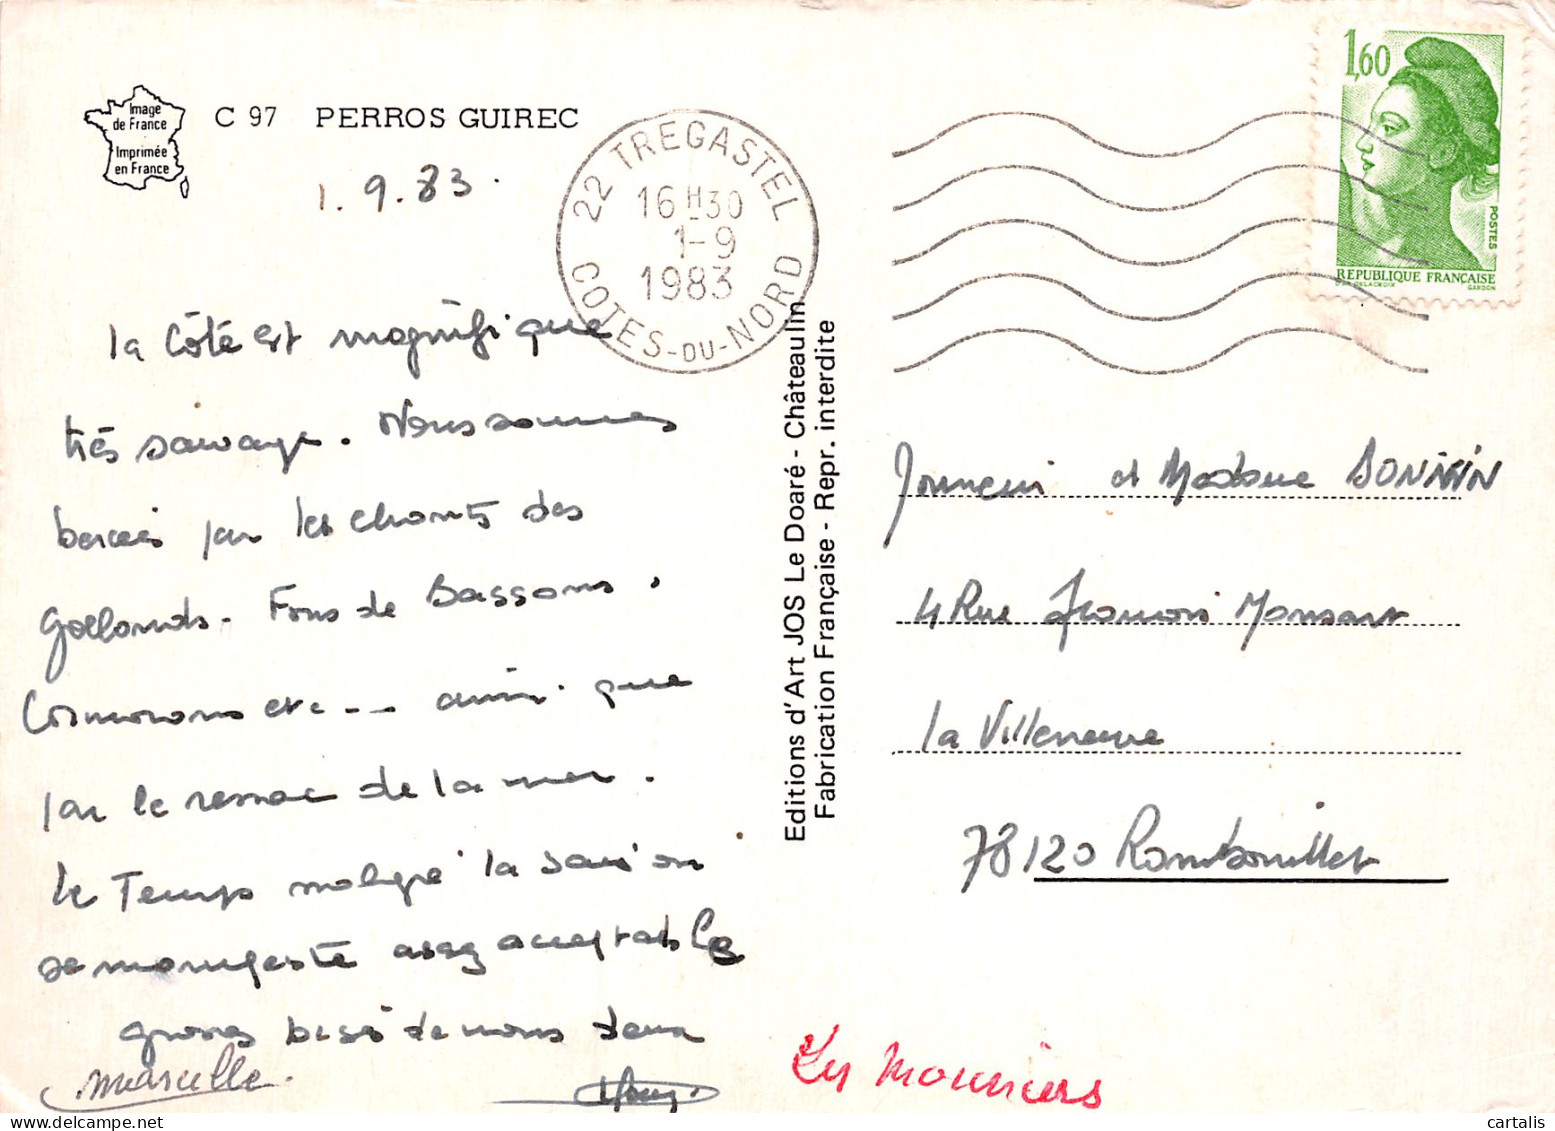 Image
de France
Imprimée
en France
C 97 PERROS GUIREC
1.9.83.
22 TREGASTEL
16H30
1-9
1983
COTES-DU-NORD
1,60
POSTES
REPUBLIQUE FRANÇAISE
DELACROIX
GANDON
la Côte est magnifique
très sauvage. Nous sommes
bercés par les chants des
goelands. Fous de Bassans.
Cormorans etc... ainsi que
par le ressac de la mer.
le Temps malgré la saison
se manifeste assez acceptable
grosses bises de nous deux
Marcelle.
Editions d'Art JOS Le Doaré - Châteaulin
Fabrication Française - Repr. interdite
Monsieur et Madame
4 Rue François Mansart
la Villeneuve
78120 Rambouillet
Les Mouniers
cartalis